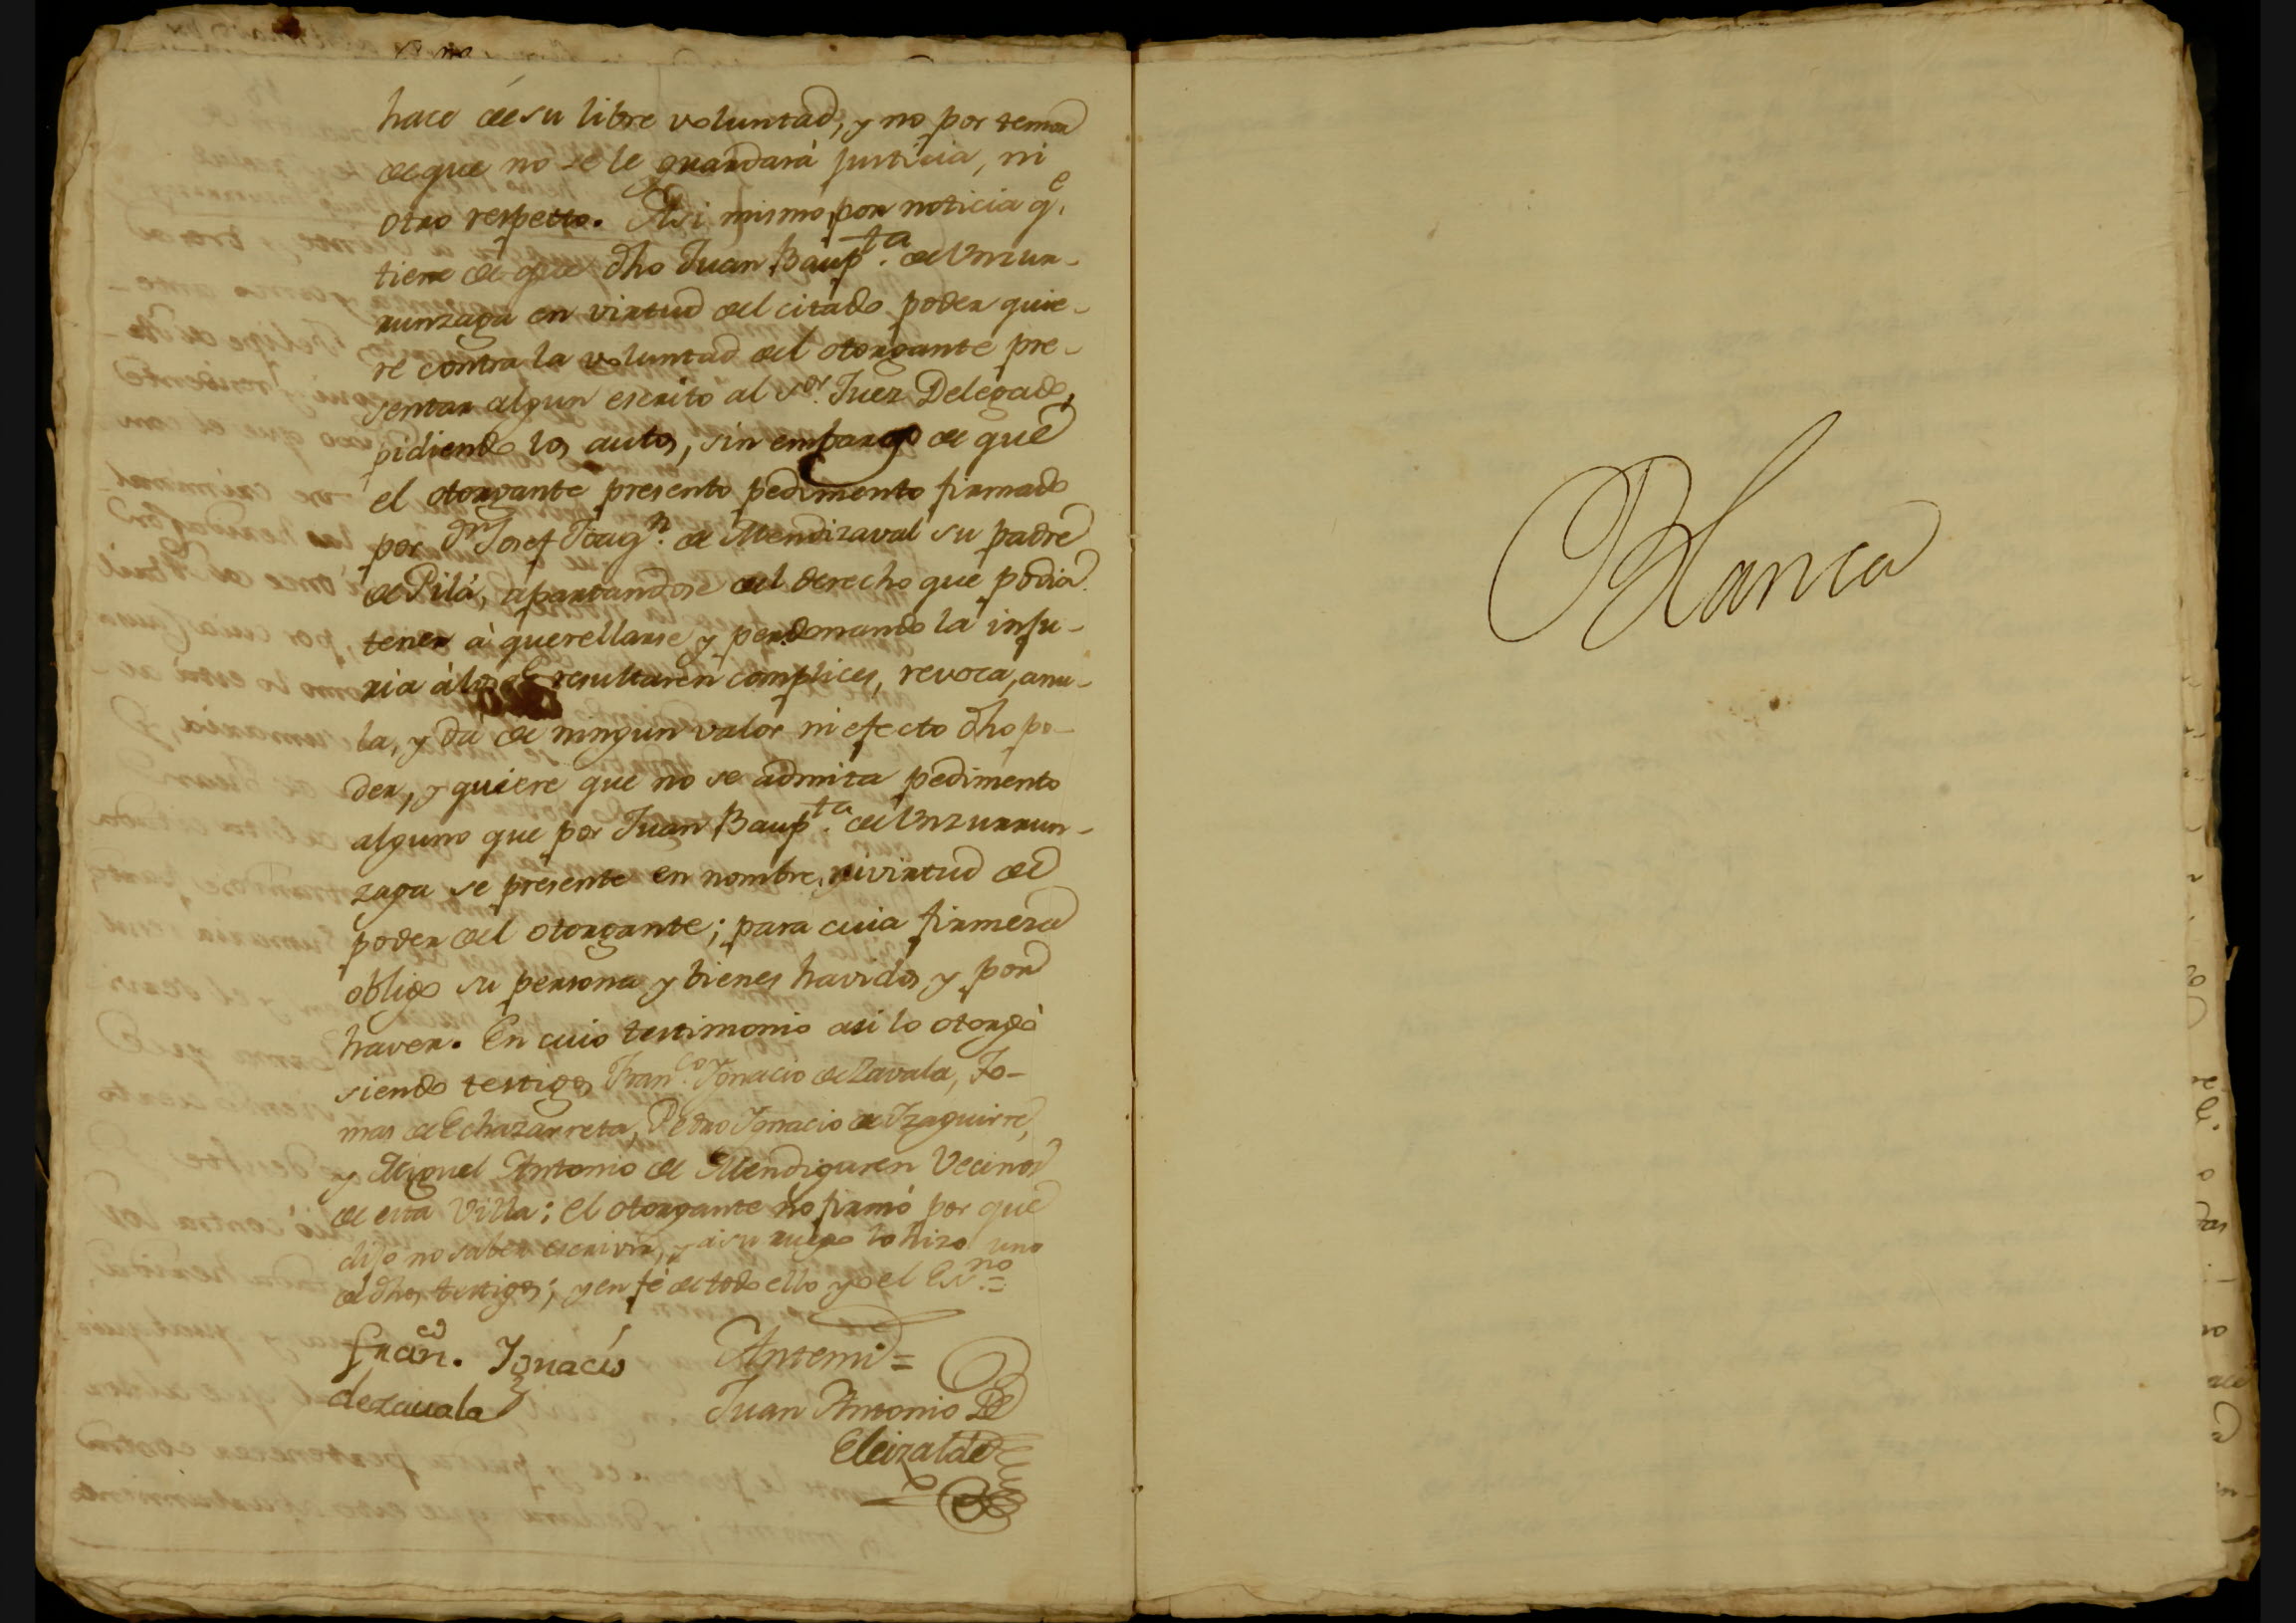 hace de su libre voluntad, y no por temor
de que no se le guardará justicia, ni
otro respecto. Asi mismo, por noticia q.e
tiene de que dho Juan Baup.ta de Unzur-
runzaga en virtud del citado poder quie-
re contra la voluntad del otorgante pre-
sentar algun escrito al S.or Juez Delegado,
pidiendo los autos, sin embargo de que
el otorgante presento pedimento firmado
por Josef Joaq.n de Mendizaval su padre
de Pila, apartandose del derecho que podia
tener à querellarse y perdonando la inju-
ria à los q.e resultaren complices, revoca, anu-
la, y dà de ningun valor ni efecto dho po-
der, y quiere que no se admita pedimento
alguno que por Juan Baup.ta de Unzurrun-
zaga se presente en nombre, ni virtud de
poder del otorgante; para cuia firmeza
obligo su persona y bienes havidos y por
haver. En cuio testimonio asi lo otorgò
siendo testigos Fran.co Ignacio de Zavala, To-
mas de Echazarreta, Pedro Ignacio de Yzaguirre,
y Miguel Antonio de Mendiguren Vecinos
de esta Villa; el otorgante no firmó por que
dijo no saber escrivir, y a su ruego lo hizo uno
de dhos testigos; y en fé de todo ello yo el Es.no=
Fran.co Ignacio
de zauala
Antemi=
Juan Antonio De
Eleizalde
Blanca